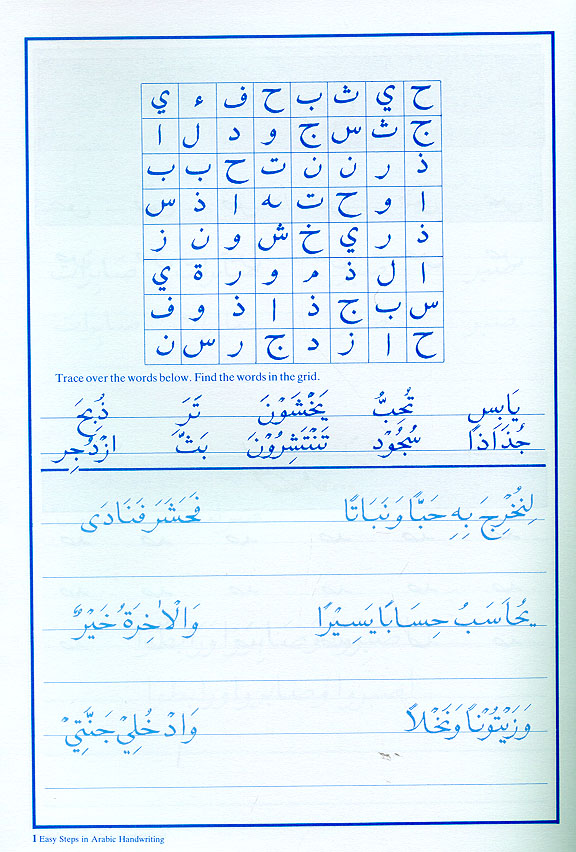 ح ي ث ب ح ف ء ي
ج ث س ج و د ل ا
ذ ر ن ن ت ح ب ب
ا و ح ت ه ا ذ س
ذ ر ي خ ش و ن ز
ا ل ذ م و ر ة ي
س ب ج ذ ا ذ و ف
ح ا ز د ج ر س ن
Trace over the words below. Find the words in the grid.
يَابِسٍ تُحِبُّ يَخْشَوْنَ تَرَ ذُبِحَ
جُذَاذًا سُجُوْد تَنْتَشِرُوْنَ بَثَّ ازْدُجِر
لِنُخْرِجَ بِهِ حَبًّا وَنَبَاتًا فَحَشَرَ فَنَادَى
يُحَاسَبُ حِسَابًا يَسِيْرًا وَالْاٰخِرَةُ خَيْرٌ
وَزَيْتُوْنًا وَنَخْلاً وَادْخُلِيْ جَنَّتِيْ
1 Easy Steps in Arabic Handwriting